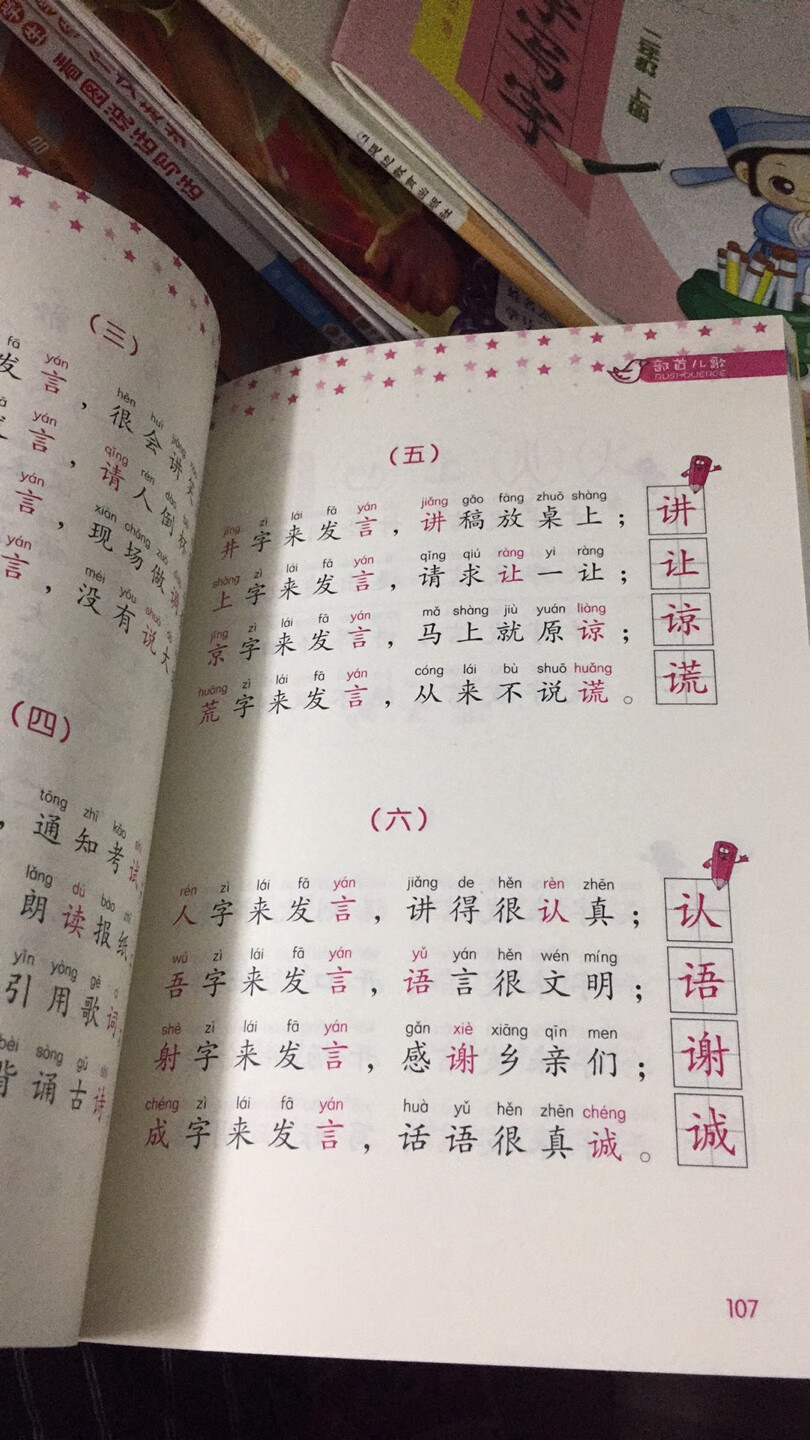 看图说话写话
写字
二年级 上册
(三)
fā yán hěn huì jiǎng
发言，很会讲笑
yán qǐng rén dào
言，请人倒
yán xiàn chǎng zuò
言，现场做调
yán méi yǒu shuō
言，没有说大
(四)
tōng zhī kǎo
，通知考试；
lǎng dú bào zhǐ
朗读报纸；
yǐn yòng gē
引用歌词；
bèi sòng gǔ
背诵古诗
部首儿歌
BUSHOUERGE
(五)
jǐng zì lái fā yán jiǎng gǎo fàng zhuō shàng
井字来发言，讲稿放桌上； 讲
shàng zì lái fā yán qǐng qiú ràng yi ràng
上字来发言，请求让一让； 让
jīng zì lái fā yán mǎ shàng jiù yuán liàng
京字来发言，马上就原谅； 谅
huāng zì lái fā yán cóng lái bù shuō huǎng
荒字来发言，从来不说谎。 谎
(六)
rén zì lái fā yán jiǎng de hěn rèn zhēn
人字来发言，讲得很认真； 认
wú zì lái fā yán yǔ yán hěn wén míng
吾字来发言，语言很文明； 语
shè zì lái fā yán gǎn xiè xiāng qīn men
射字来发言，感谢乡亲们； 谢
chéng zì lái fā yán huà yǔ hěn zhēn chéng
成字来发言，话语很真诚。 诚
107